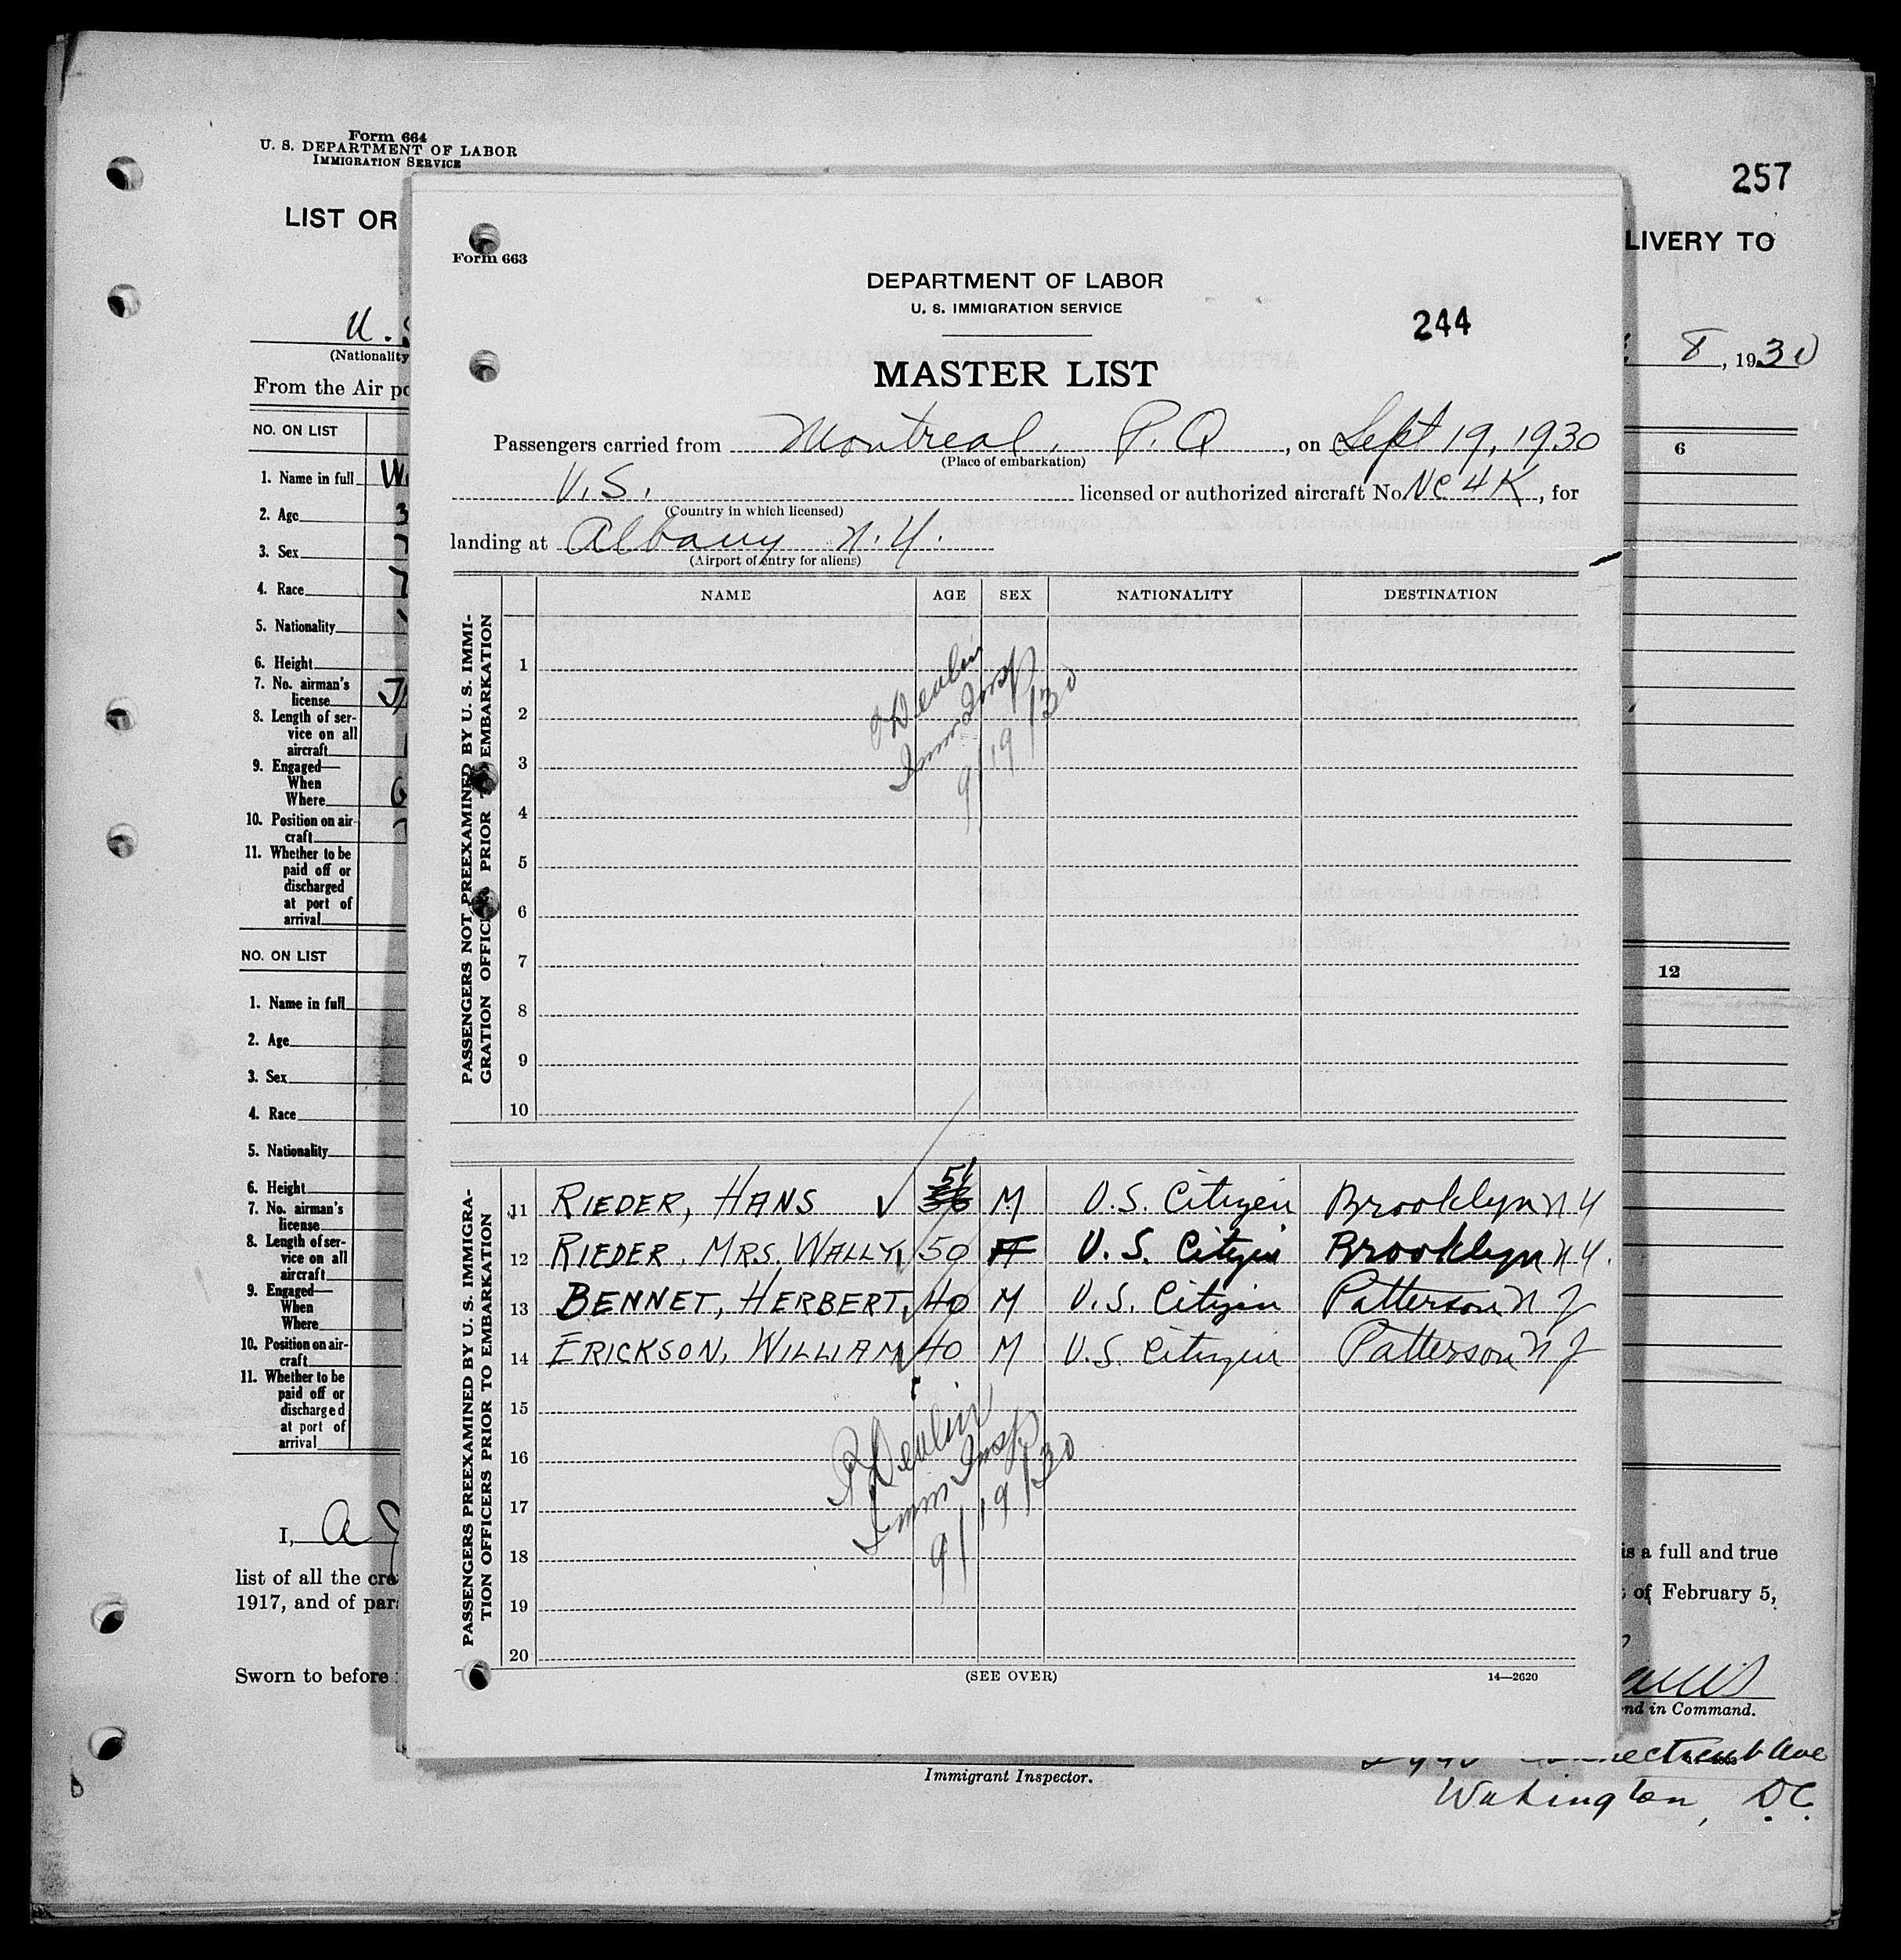 Form 664
U. S. DEPARTMENT OF LABOR
IMMIGRATION SERVICE
257
LIST OR
LIVERY TO
(Nationality
8, 1930
From the Air po
NO. ON LIST
6
1. Name in full
2. Age
3. Sex
4. Race
5. Nationality
6. Height
7. No. airman's
license
8. Length of ser-
vice on all
aircraft
9. Engaged—
When
Where
10. Position on air-
craft
11. Whether to be
paid off or
discharged
at port of
arrival
NO. ON LIST
12
1. Name in full
2. Age
3. Sex
4. Race
5. Nationality
6. Height
7. No. airman's
license
8. Length of ser-
vice on all
aircraft
9. Engaged—
When
Where
10. Position on air-
craft
11. Whether to be
paid off or
discharged
at port of
arrival
I, A
is a full and true
list of all the cre
of February 5,
1917, and of par
Sworn to before
nd in Command.
Immigrant Inspector.
Connecticut Ave
Wahington, D.C.
Form 663
DEPARTMENT OF LABOR
U. S. IMMIGRATION SERVICE
244
MASTER LIST
Passengers carried from Montreal, P.Q, on Sept 19, 1930
(Place of embarkation)
U.S. licensed or authorized aircraft No. NC 4K, for
(Country in which licensed)
landing at Albany N.Y.
(Airport of entry for aliens)
NAME AGE SEX NATIONALITY DESTINATION
PASSENGERS NOT PREEXAMINED BY U. S. IMMI-
GRATION OFFICERS PRIOR TO EMBARKATION
1
2
3
4
5
6
7
8
9
10
Devlin
Imm Insp
9/19/30
PASSENGERS PREEXAMINED BY U. S. IMMIGRA-
TION OFFICERS PRIOR TO EMBARKATION
11 RIEDER, HANS M U.S. Citizen Brooklyn N Y
12 RIEDER, MRS. WALLY 50 F U.S. Citizen Brooklyn N Y.
13 BENNET, HERBERT 40 M U.S. Citizen Patterson N J
14 ERICKSON, WILLIAM 40 M U.S. Citizen Patterson N J
15
16
17
18
19
20
Devlin
Imm Insp
9/19/30
(SEE OVER)
14—2620